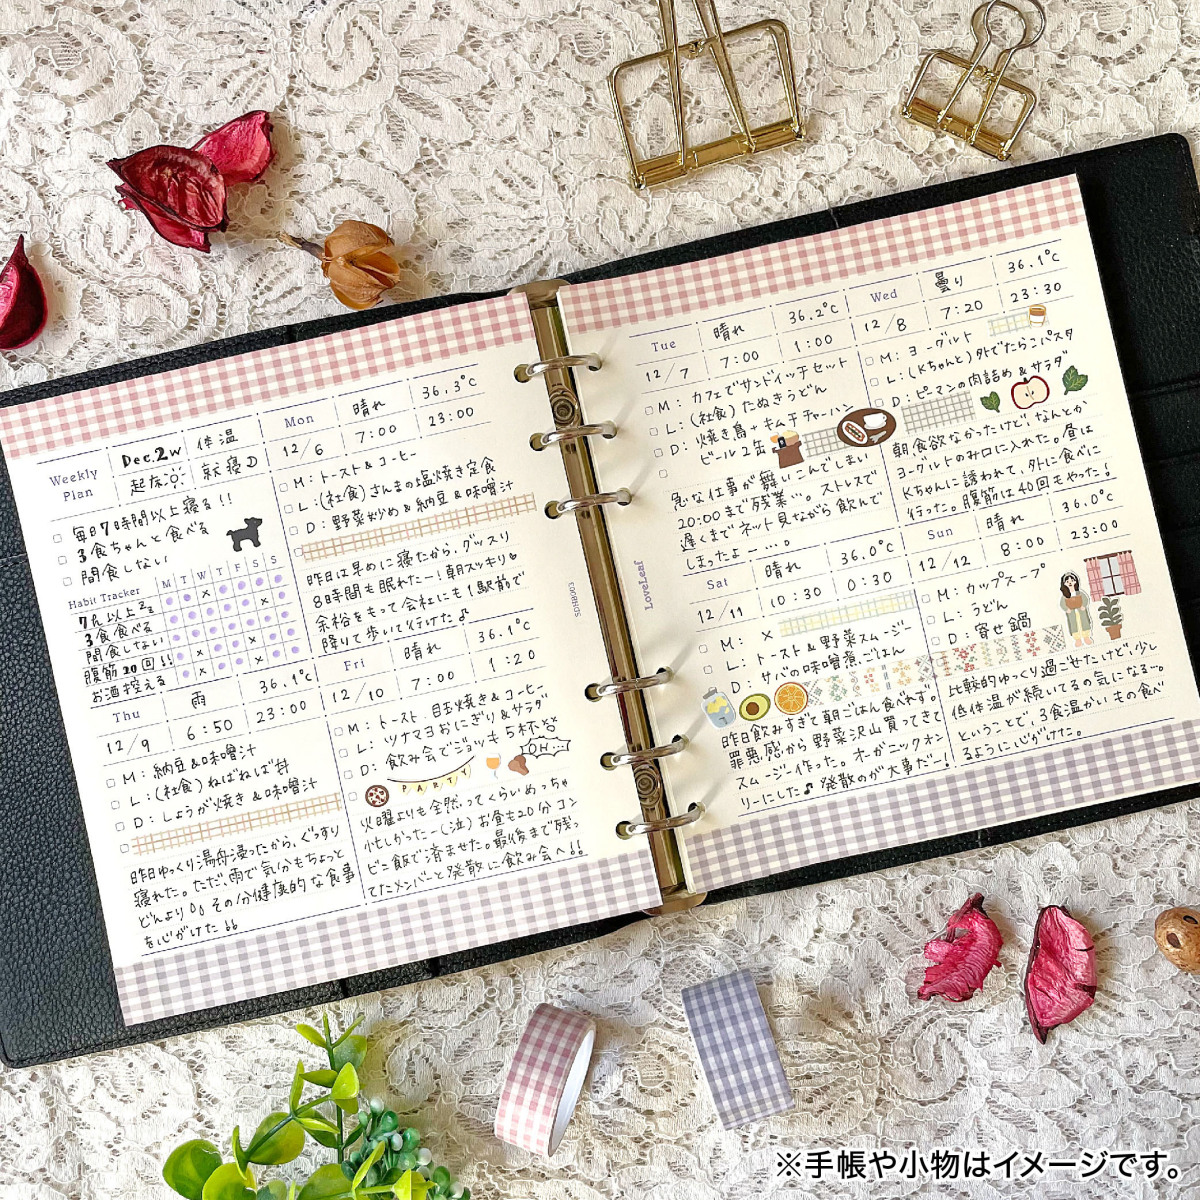 Weekly Plan
Dec.2w
体温
起床
就寝
毎日7時間以上寝る!!
3食ちゃんと食べる
間食しない
Habit Tracker
M T W T F S S
7h以上
3食食べる
間食しない
腹筋20回!!
お酒控える
Mon
晴れ
36.3℃
12/6
7:00
23:00
M:トースト&コーヒー
L:(社食)さんまの塩焼き定食
D:野菜炒め&納豆&味噌汁
昨日は早めに寝たから、グッスリ
8時間も眠れたー!朝スッキリ
余裕をもって会社にも1駅前で
降りて歩いて行けた♪
Thu
雨
36.1℃
12/9
6:50
23:00
M:納豆&味噌汁
L:(社食)ねばねば丼
D:しょうが焼き&味噌汁
昨日ゆっくり湯舟浸ったから、ぐっすり
寝れた。ただ、雨で気分もちょっと
どんより。その分健康的な食事
を心がけた
Fri
晴れ
36.1℃
12/10
7:00
1:20
M:トースト、目玉焼き&コーヒー
L:ツナマヨおにぎり&サラダ
D:飲み会でジョッキ5杯ほど
OH...
PARTY
火曜よりも全然ってくらいめっちゃ
忙しかったー(泣)お昼も20分コン
ビニ飯で済ませた。最後まで残っ
てたメンバーと発散に飲み会へ
Tue
晴れ
36.2℃
12/7
7:00
1:00
M:カフェでサンドイッチセット
L:(社食)たぬきうどん
D:焼き鳥+キムチチャーハン
ビール2缶
急な仕事が舞いこんでしまい
20:00まで残業…。ストレスで
遅くまでネット見ながら飲んで
しまったよー…。
Wed
曇り
36.1℃
12/8
7:20
23:30
M:ヨーグルト
L:(Kちゃんと)外でたらこパスタ
D:ピーマンの肉詰め&サラダ
朝、食欲なかったけど、なんとか
ヨーグルトのみ口に入れた。昼は
Kちゃんに誘われて、外に食べに
行った。腹筋は40回もやった!
Sat
晴れ
36.0℃
12/11
10:30
0:30
M:×
L:トースト&野菜スムージー
D:サバの味噌煮、ごはん
昨日飲みすぎて朝ごはん食べれず。
罪悪感から野菜沢山買ってきて
スムージー作った。オーガニックオン
リーにした♪発散のが大事だー!
Sun
晴れ
36.0℃
12/12
8:00
23:00
M:カップスープ
L:うどん
D:寄せ鍋
比較的ゆっくり過ごせたけど、少し
低体温が続いてるの気になる…。
ということで、3食温かいもの食べ
るように心がけた。
LoveLeaf
※手帳や小物はイメージです。